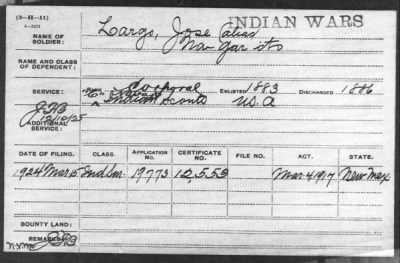 (3-31-11)
INDIAN WARS
NAME OF SOLDIER: Largo, Jose alias
Nav Gar ito
NAME AND CLASS OF DEPENDENT:
SERVICE: Corporal ENLISTED 1883 DISCHARGED 1886
"C" Indian Scouts U.S.A
JFB
12/10/25
ADDITIONAL SERVICE:
DATE OF FILING. CLASS. APPLICATION NO. CERTIFICATE NO. FILE NO. ACT. STATE.
1924 Mar 15 Ind Sur 19773 12,555 Mar 4 1917 New Mex
BOUNTY LAND:
REMARKS: JFB